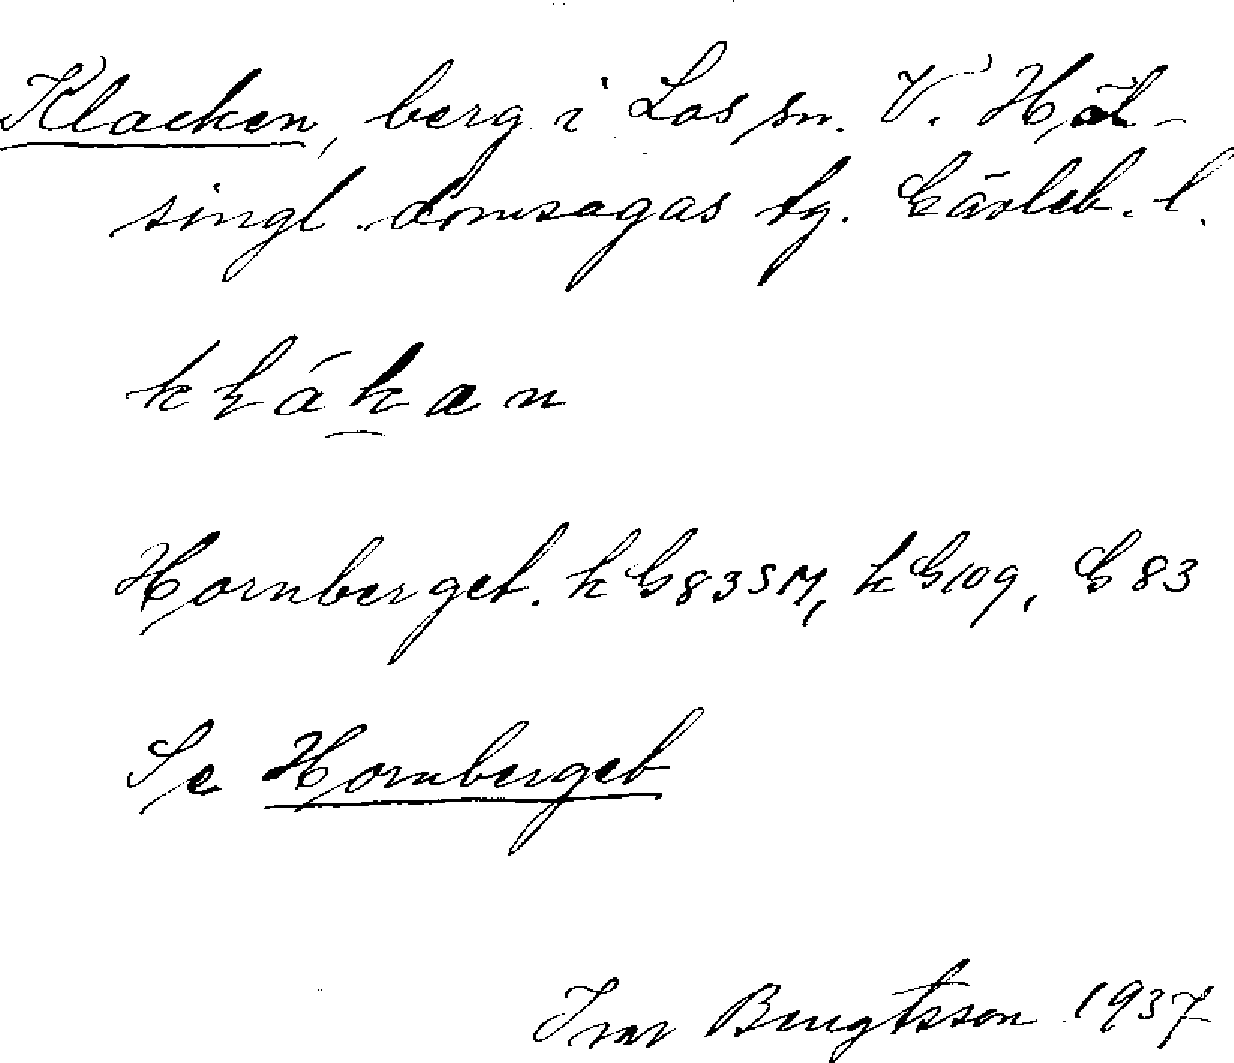 Klacken, berg i Los sn. V. Häl-
singl. domsagas tg. Gävleb. l.
kḷákan
Hornberget. k G83SM, k G109, G 83
Se Hornberget
Ivar Bengtsson 1937